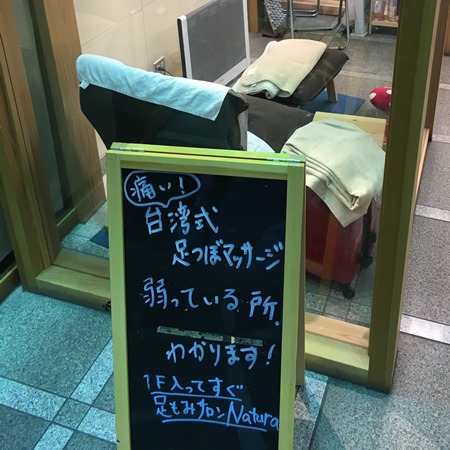 痛い!
台湾式
足つぼマッサージ
弱っている所、
わかります!
1F入ってすぐ
足もみサロンNatura